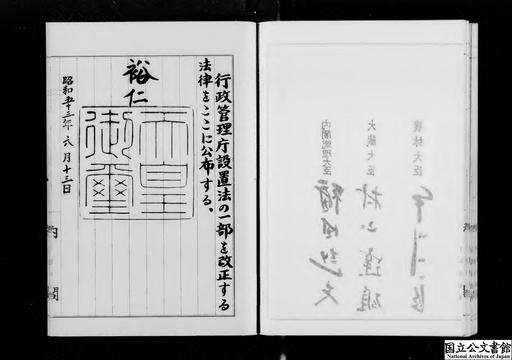 行政管理庁設置法の一部を改正する
法律をここに公布する。
裕仁
天皇
御璽
昭和五十三年六月十三日
内閣
農林大臣
大蔵大臣 村山達雄
内閣総理大臣 福田赳夫
国立公文書館
National Archives of Japan